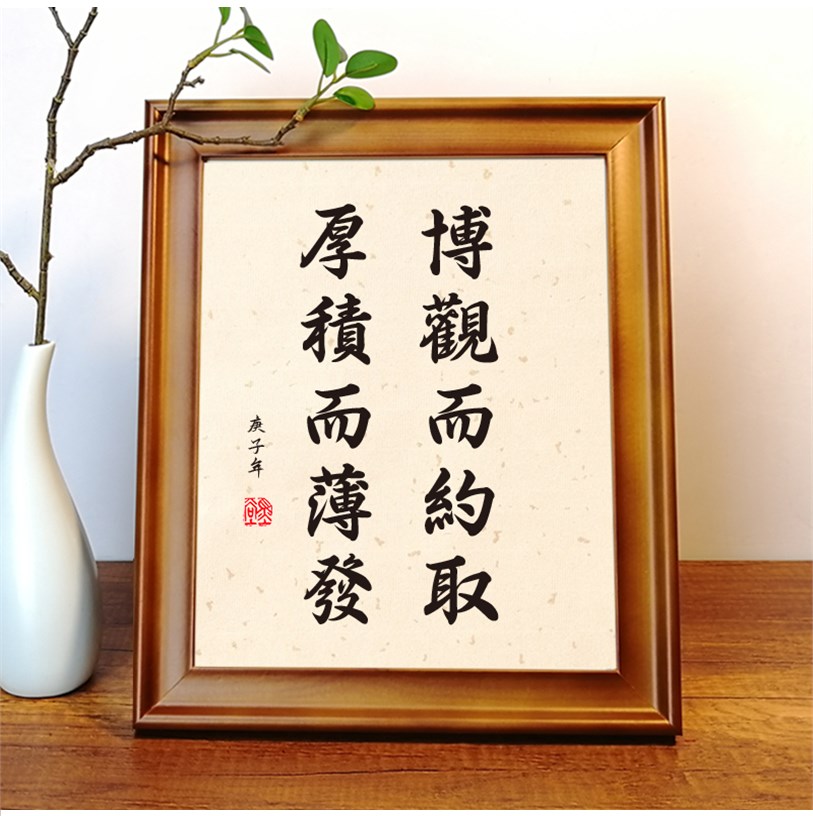 博觀而約取
厚積而薄發
庚子年